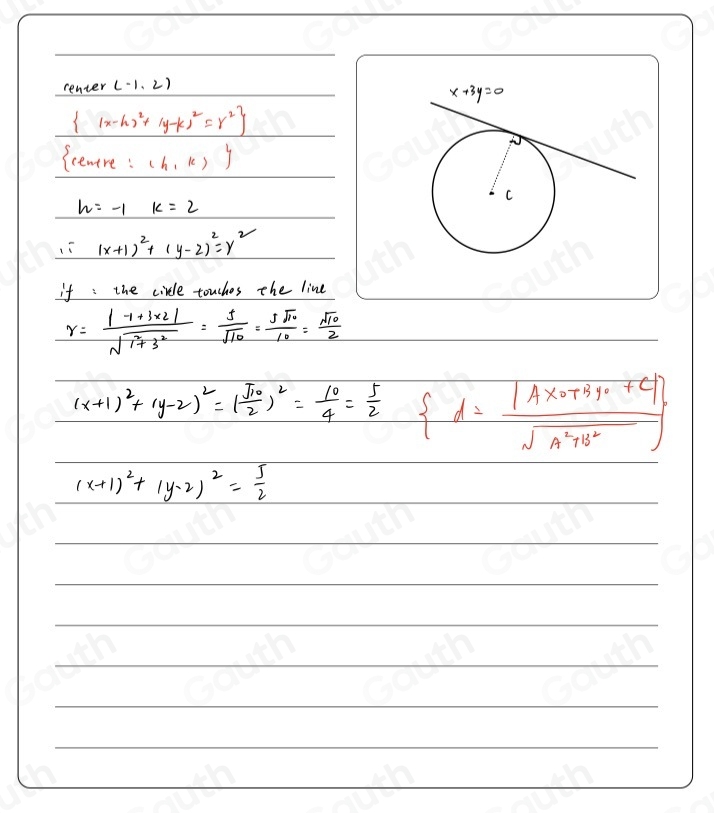 center (-1, 2)
{ (x-h)²+(y-k)²=r²}
{centre : (h, k) }
h=-1 k=2
∴ (x+1)²+(y-2)²=r²
if : the circle touches the line
r= |-1+3×2| / √(1²+3²) = 5/√10 = 5√10/10 = √10/2
(x+1)²+(y-2)²=(√10/2)² = 10/4 = 5/2
{ d= |Ax₀+By₀+C| / √(A²+B²) }
(x+1)²+(y-2)²=5/2
x+3y=0
C